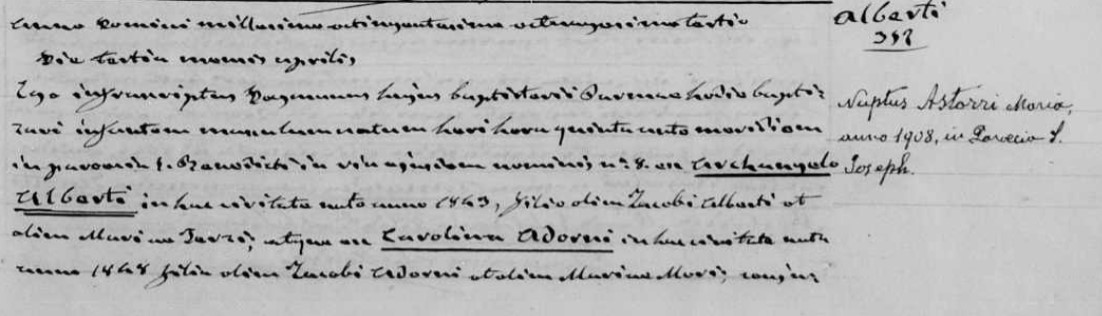 Anno Domini millesimo octingentesimo octuagesimo tertio
Die tertia mensis aprilis,
Ego infrascriptus Dogmanus hujus baptisterii Parmae hodie bapti=
zavi infantem masculum natum heri hora quinta ante meridiem
in paroecia S. Benedicti in via ejusdem nominis n.º 8. ex Archangelo
Alberti in hac civitate nato anno 1843, filio olim Jacobi Alberti et
olim Marinae Terzi; atque ex Carolina Adorni in hac civitate nata
anno 1848 filia olim Jacobi Adorni et olim Marinae Mori; conju=
Alberti
Nuptus Astorri Maria,
anno 1908, in Paroecia S.
Joseph.